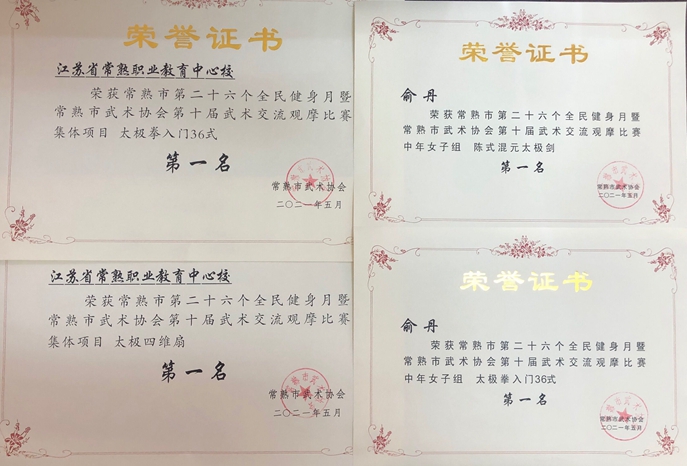 荣誉证书
江苏省常熟职业教育中心校
荣获常熟市第二十六个全民健身月暨
常熟市武术协会第十届武术交流观摩比赛
集体项目 太极拳入门36式
第一名
常熟市武术协会
二〇二一年五月
荣誉证书
俞丹
荣获常熟市第二十六个全民健身月暨
常熟市武术协会第十届武术交流观摩比赛
中年女子组 陈式混元太极剑
第一名
常熟市武术协会
二〇二一年五月
江苏省常熟职业教育中心校
荣获常熟市第二十六个全民健身月暨
常熟市武术协会第十届武术交流观摩比赛
集体项目 太极四维扇
第一名
常熟市武术协会
二〇二一年五月
荣誉证书
俞丹
荣获常熟市第二十六个全民健身月暨
常熟市武术协会第十届武术交流观摩比赛
中年女子组 太极拳入门36式
第一名
常熟市武术协会
二〇二一年五月